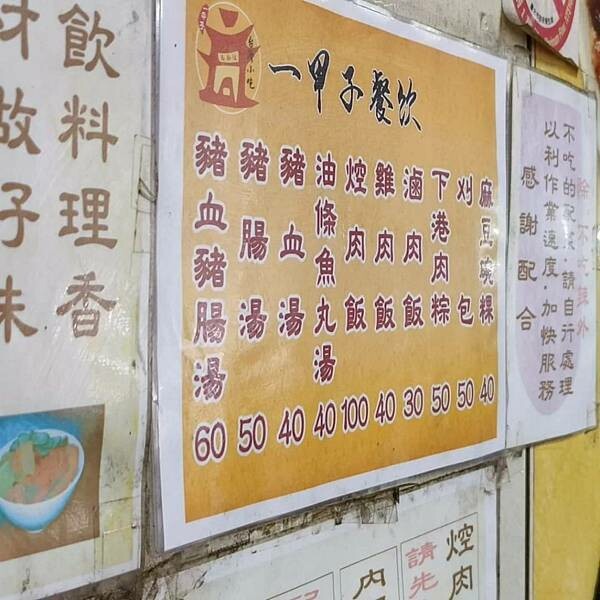 一甲子餐飲
麻豆碗粿 40
刈包 50
下港肉粽 50
滷肉飯 30
雞肉飯 40
焢肉飯 100
油條魚丸湯 40
豬血湯 40
豬腸湯 50
豬血豬腸湯 60
飲料理香
做好味
除不吃
不吃的配
請自行處理
以利作業速度·加快服務
感謝配合
焢肉
請先
內